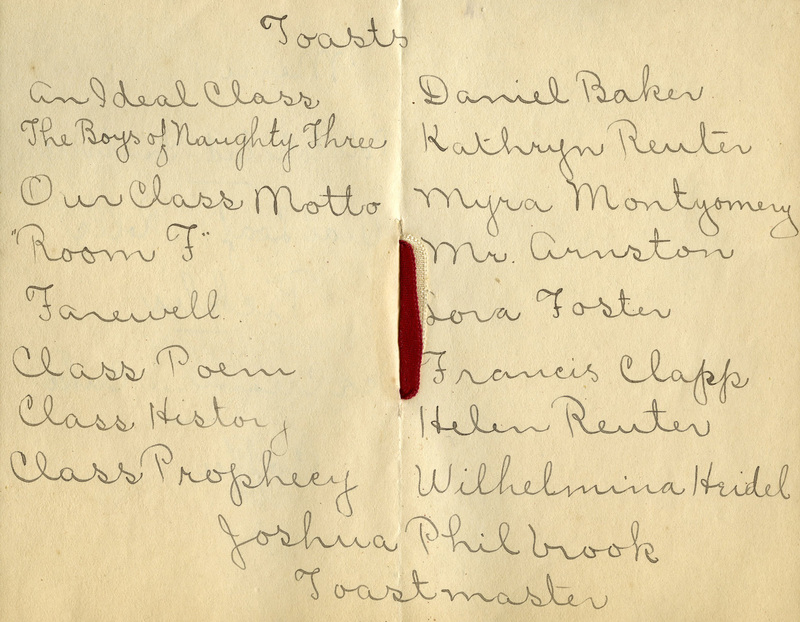 Toasts
An Ideal Class Daniel Baker
The Boys of Naughty Three Kathryn Reuter
Our Class Motto Myra Montgomery
"Room F" Mr. Arnston
Farewell Lora Foster
Class Poem Francis Clapp
Class History Helen Reuter
Class Prophecy Wilhelmina Heidel
Joshua Philbrook
Toastmaster